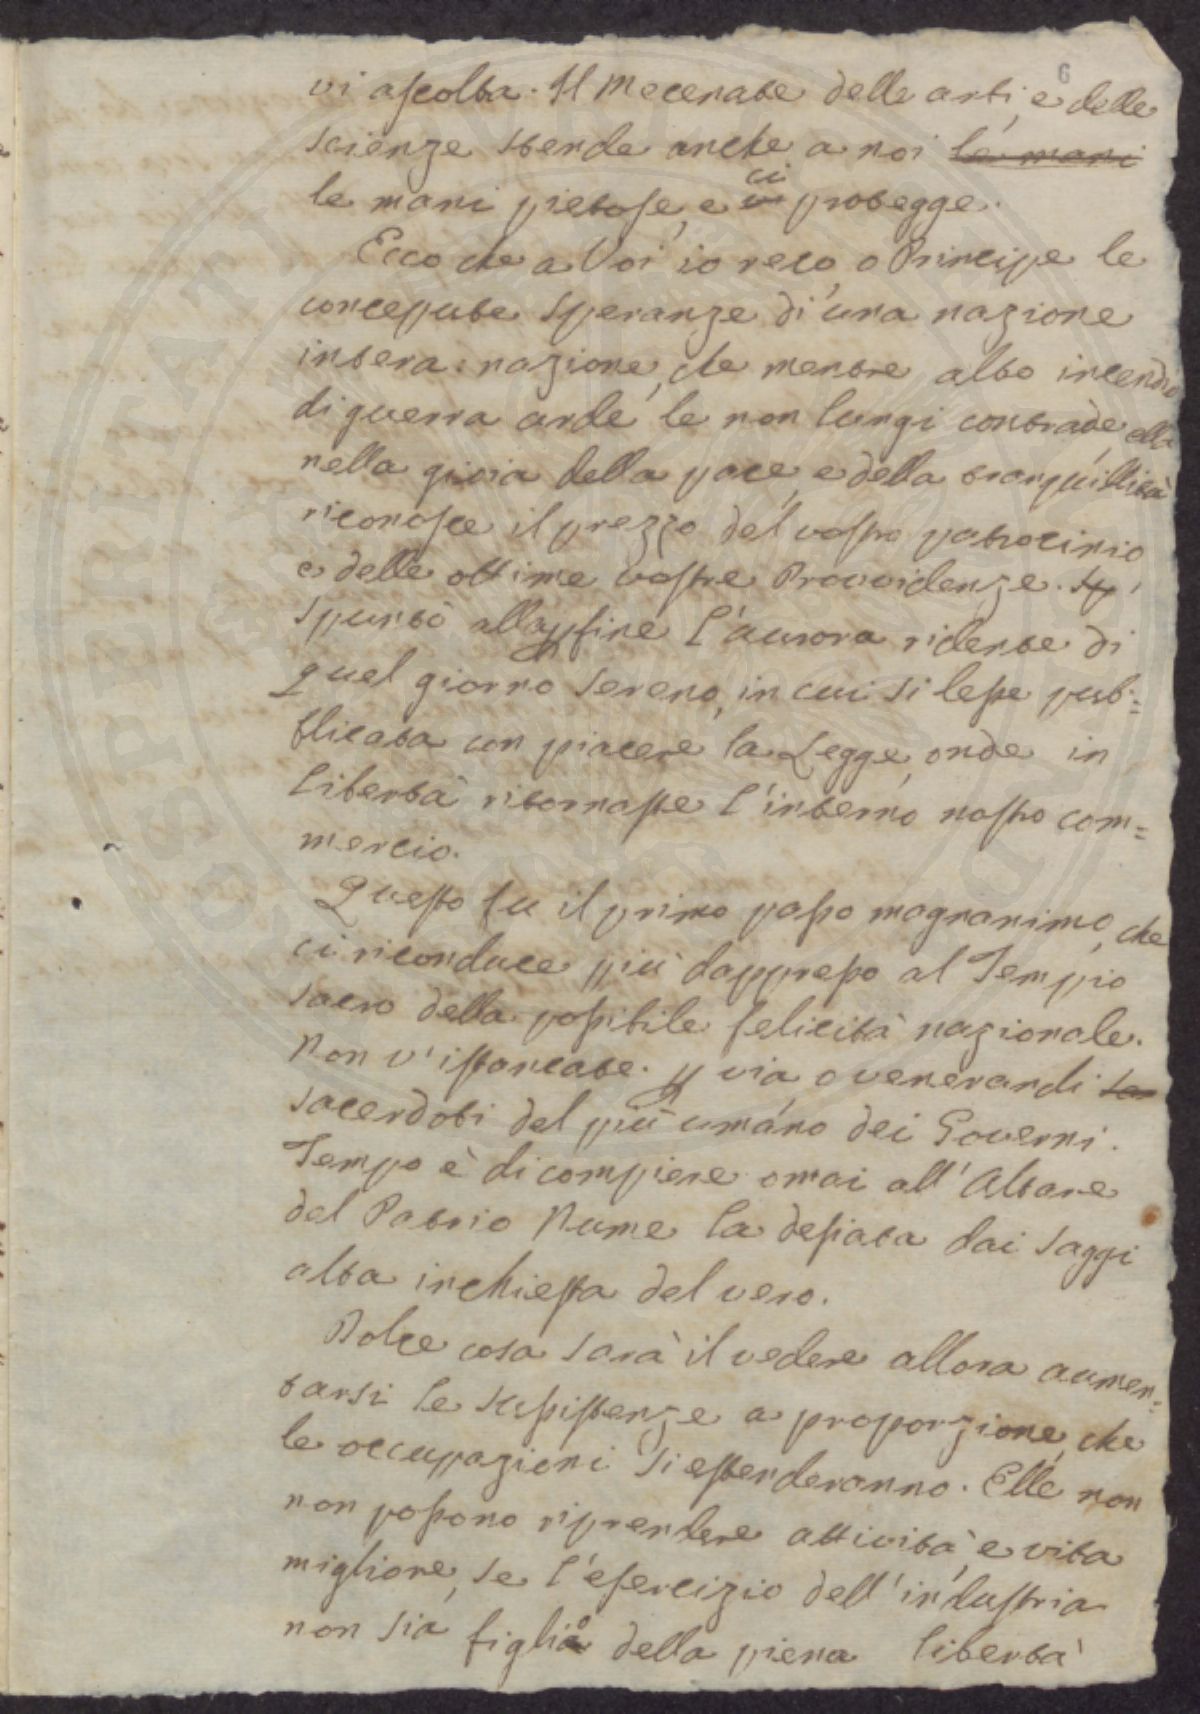 6
vi ascolta. Il Mecenate delle arti, e delle
scienze stende anche a noi le mani
le mani pietose, e ci protegge.
Ecco che a Voi io reco, o Principe le
concepute speranze di una nazione
intera: nazione, che mentre alto incendio
di guerra arde le non lungi contrade, ella
nella gioia della pace, e della tranquillità
riconosce il prezzo del vostro patrocinio
e delle ottime vostre Provvidenze. Sp
Spuntò alla pfine l'aurora ridente di
quel giorno sereno, in cui si lesse pub=
blicata con piacere la Legge, onde in
libertà ritornasse l'interno nostro com=
mercio.
Questo fu il primo passo magnanimo, che
ci riconduce più dappresso al Tempio
sacro della possibile felicità nazionale.
Non v'istancate. Su via, o venerandi Sa
sacerdoti del più umano dei Governi.
Tempo è di compiere omai all'Altare
del Patrio Nume la desiata dai saggi
alta inchiesta del vero.
Dolce cosa sarà il vedere allora aumen=
tarsi le sussistenze a proporzione, che
le occupazioni si estenderanno. Elle non
non possono riprendere attività, e vita
migliore, se l'esercizio dell'industria
non sia figlio della piena libertà